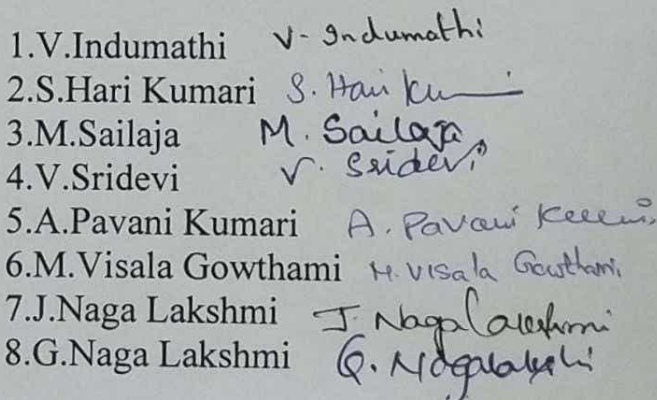 1.V.Indumathi V- Indumathi
2.S.Hari Kumari S. Hari Ku
3.M.Sailaja M. Sailaja
4.V.Sridevi V. Sridevi
5.A.Pavani Kumari A. Pavani
6.M.Visala Gowthami M. Visala Gowthami
7.J.Naga Lakshmi J. Naga Lakshmi
8.G.Naga Lakshmi G.